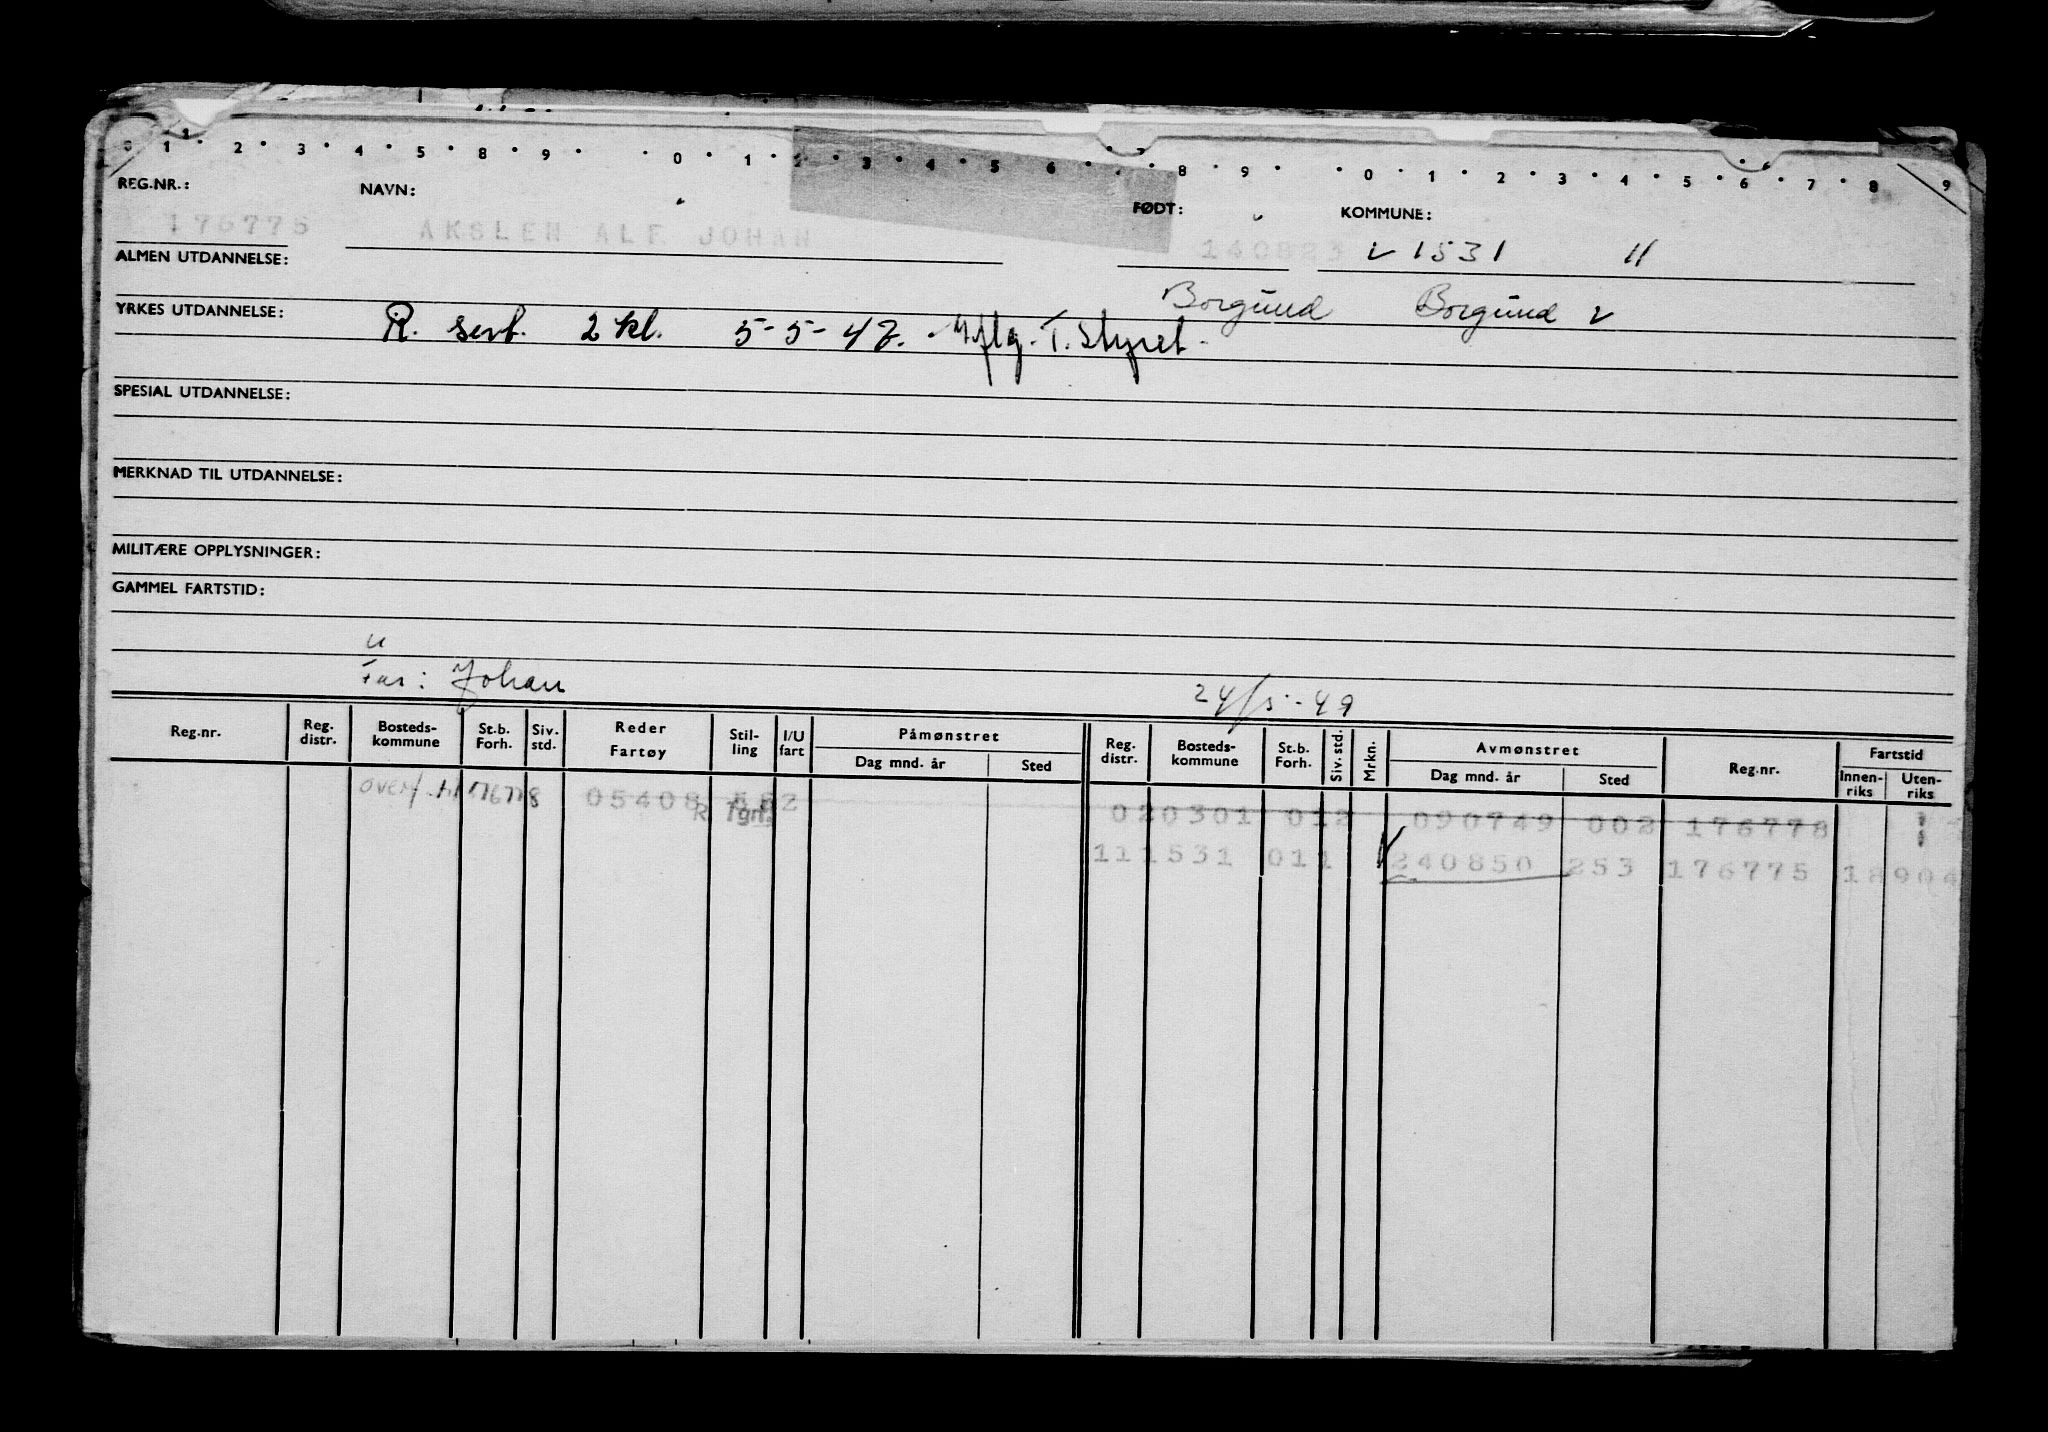 0 1 2 3 4 5 8 9 0 1 2 3 4 5 6 7 8 9 0 1 2 3 4 5 6 7 8 9
REG.NR.: NAVN: FØDT: KOMMUNE:
176775 AKSLEN ALF JOHAN 140823 v 1531 11
ALMEN UTDANNELSE:
Borgund Borgund v
YRKES UTDANNELSE: R. sert. 2 kl. 5-5-47. T. Styret.
SPESIAL UTDANNELSE:
MERKNAD TIL UTDANNELSE:
MILITÆRE OPPLYSNINGER:
GAMMEL FARTSTID:
u
Far: Johan 24/5-49
Reg.nr. Reg. distr. Bosteds-kommune St.b. Forh. Siv. std. Reder Fartøy Stil-ling I/U fart Påmønstret Dag mnd. år Sted Reg. distr. Bosteds-kommune St.b. Forh. Siv. std. Mrkn. Avmønstret Dag mnd. år Sted Reg.nr. Fartstid Innen-riks Uten-riks
overf. til 176778 05408 552 020301 012 090749 002 176778
R. Tgrf.
111531 011 240850 253 176775 18904